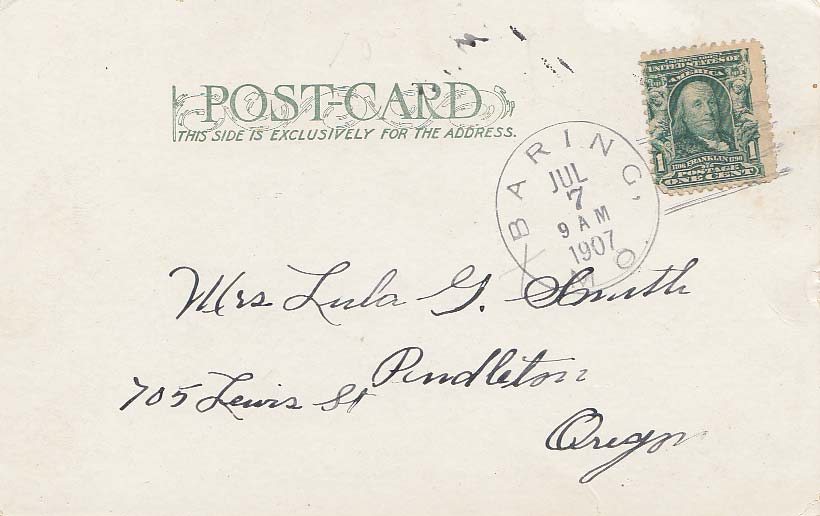 POST-CARD
THIS SIDE IS EXCLUSIVELY FOR THE ADDRESS.
UNITED STATES OF
AMERICA
1 1706 FRANKLIN 1790 1
POSTAGE
ONE CENT
BARING, MO
JUL
7
9 AM
1907
Mrs Lula G. Smith
Pendleton
705 Lewis St
Oregon